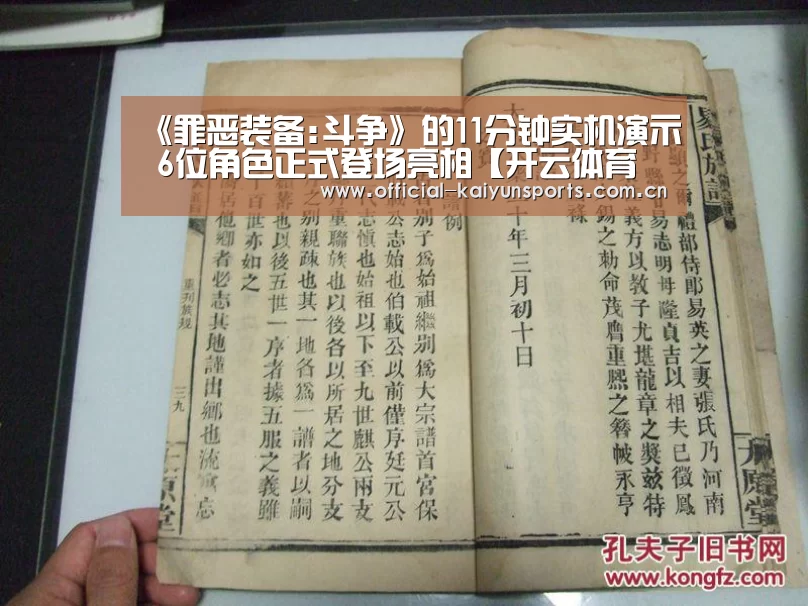 《罪恶装备:斗争》的11分钟实机演示
6位角色正式登场亮相【开云体育
www.official-kaiyunsports.com.cn
易氏族譜
禮部侍郎易英之妻張氏乃河南
易志明母隆貞吉以相夫已徵鳳
義方以教子尤堪龍章之獎茲特
錫之勅命茂膺重熙之眷帔永亨
十年三月初十日
例
別子為始祖繼別為大宗譜首宮保
載公志始也伯載公以前僅序廷元公
志愼也始祖以下至九世麒公兩支
重聯族也以後各以所居之地分支
之别親疎也其一地各爲一譜者以嗣
也以後五世一序者據五服之義雖
百世亦如之
居他鄉者必志其地謹出鄉也流寓忘
重刊族規
三九
太原堂
太原堂
孔夫子旧书网
www.kongfz.com